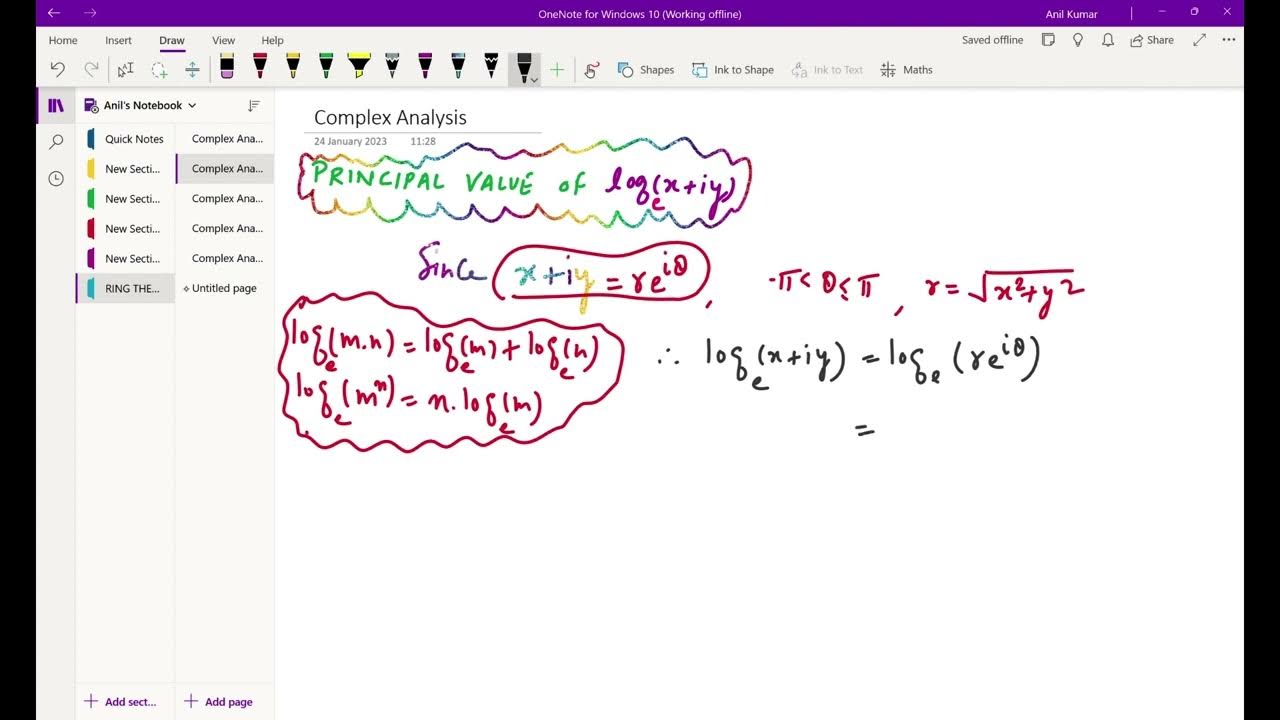 OneNote for Windows 10 (Working offline)
Anil Kumar
Home Insert Draw View Help
Saved offline
Share
Shapes
Ink to Shape
Ink to Text
Maths
Anil's Notebook
Quick Notes
New Secti...
New Secti...
New Secti...
New Secti...
RING THE...
Complex Ana...
Complex Ana...
Complex Ana...
Complex Ana...
Complex Ana...
Untitled page
Add sect...
Add page
Complex Analysis
24 January 2023 11:28
PRINCIPAL VALUE OF logₑ(x+iy)
Since x+iy = re^{iθ}, -π < θ ≤ π, r = √(x²+y²)
logₑ(m.n) = logₑ(m) + logₑ(n)
logₑ(mⁿ) = n.logₑ(m)
∴ logₑ(x+iy) = logₑ(re^{iθ})
=